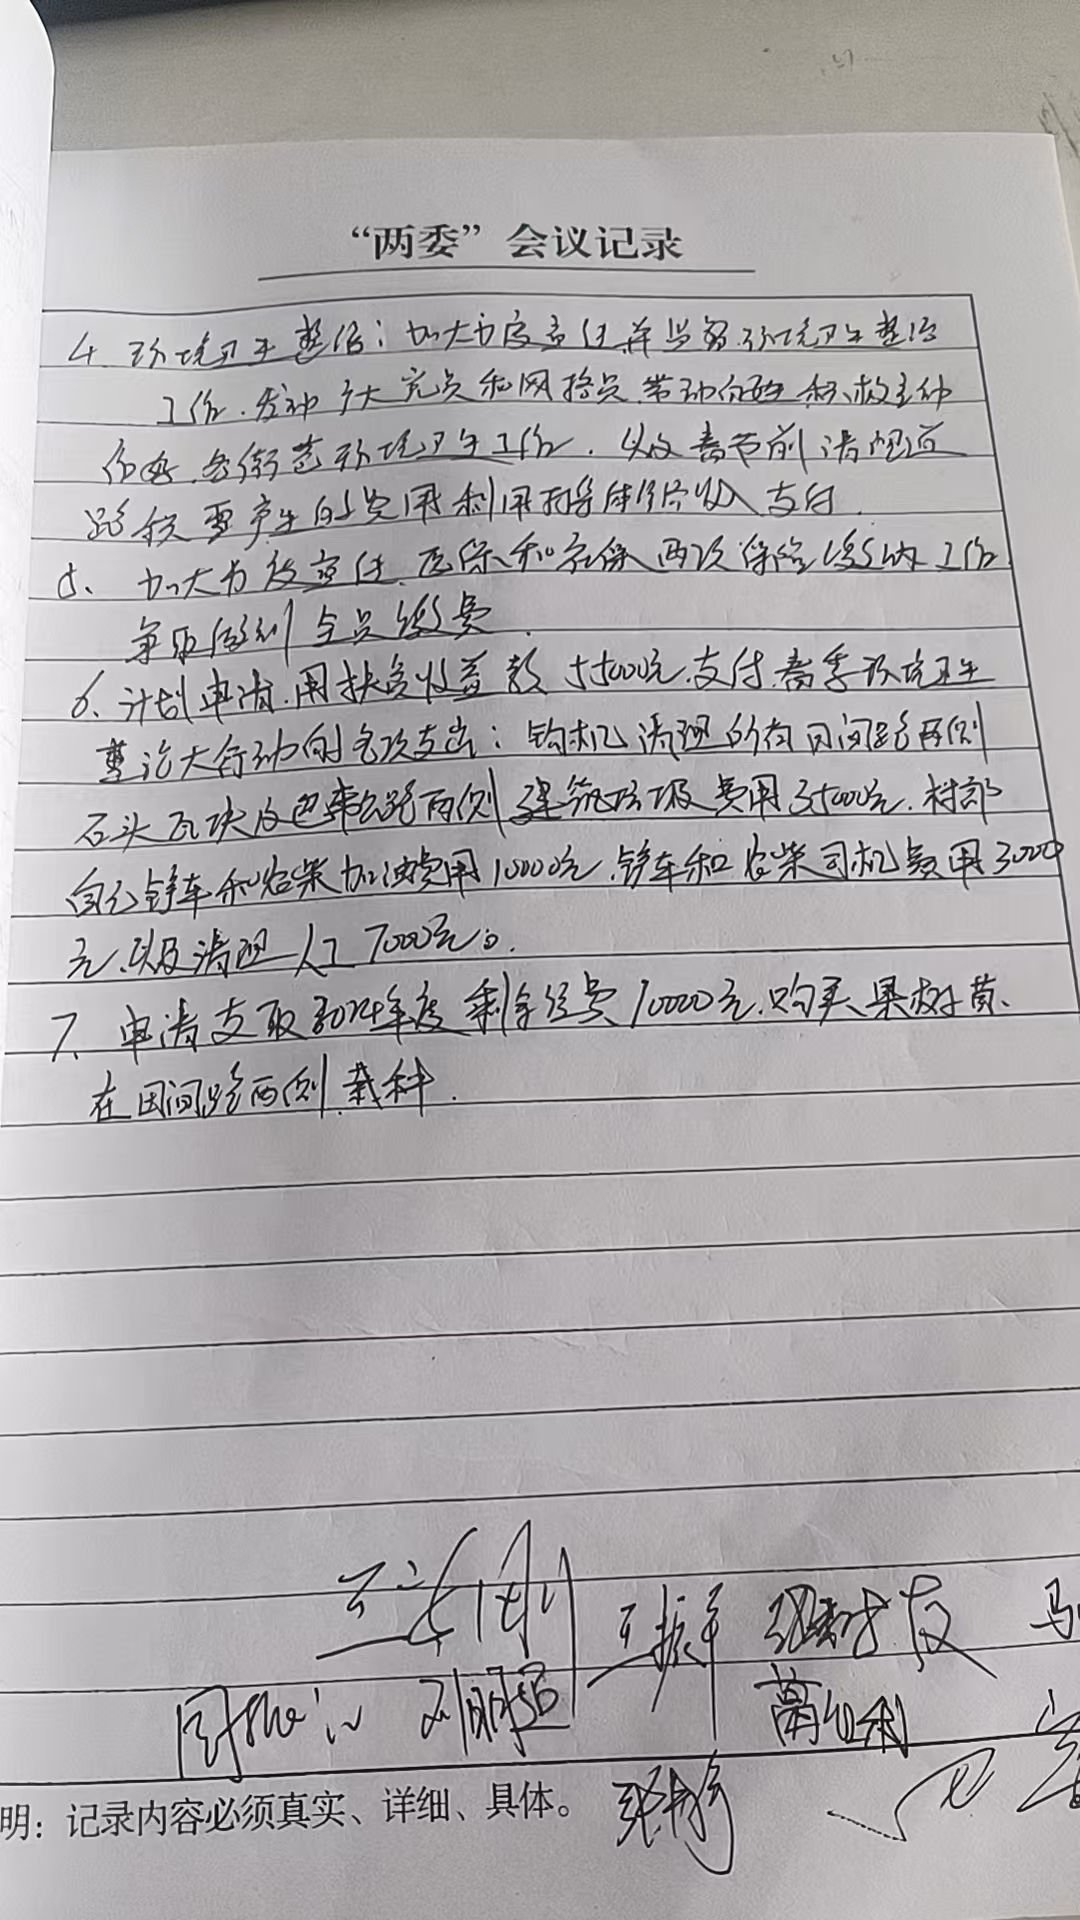 “两委”会议记录
4. 环境卫生整治：加大力度宣传,并监督环境卫生整治
工作.发动广大党员和网格员,带动百姓积极主动
做好各街巷环境卫生工作.以及春节前清理道
路积雪产生的费用利用村集体经济收入支付.
5、加大力度宣传,医保和社保两项保险缴纳工作
争取做到全员缴费.
6、计划申请,用扶贫收益款55000元,支付春季环境卫生
整治大行动的各项支出：钩机清理所有田间路两侧
石头瓦块及 公路两侧建筑垃圾费用35000元.村部
自己铲车和农柴加油费用10000元.铲车和农柴司机费用3000
元,以及清理人工7000元。
7、申请支取2024年度剩余经费10000元.购买果树苗、
在田间路两侧,栽种.
明：记录内容必须真实、详细、具体。